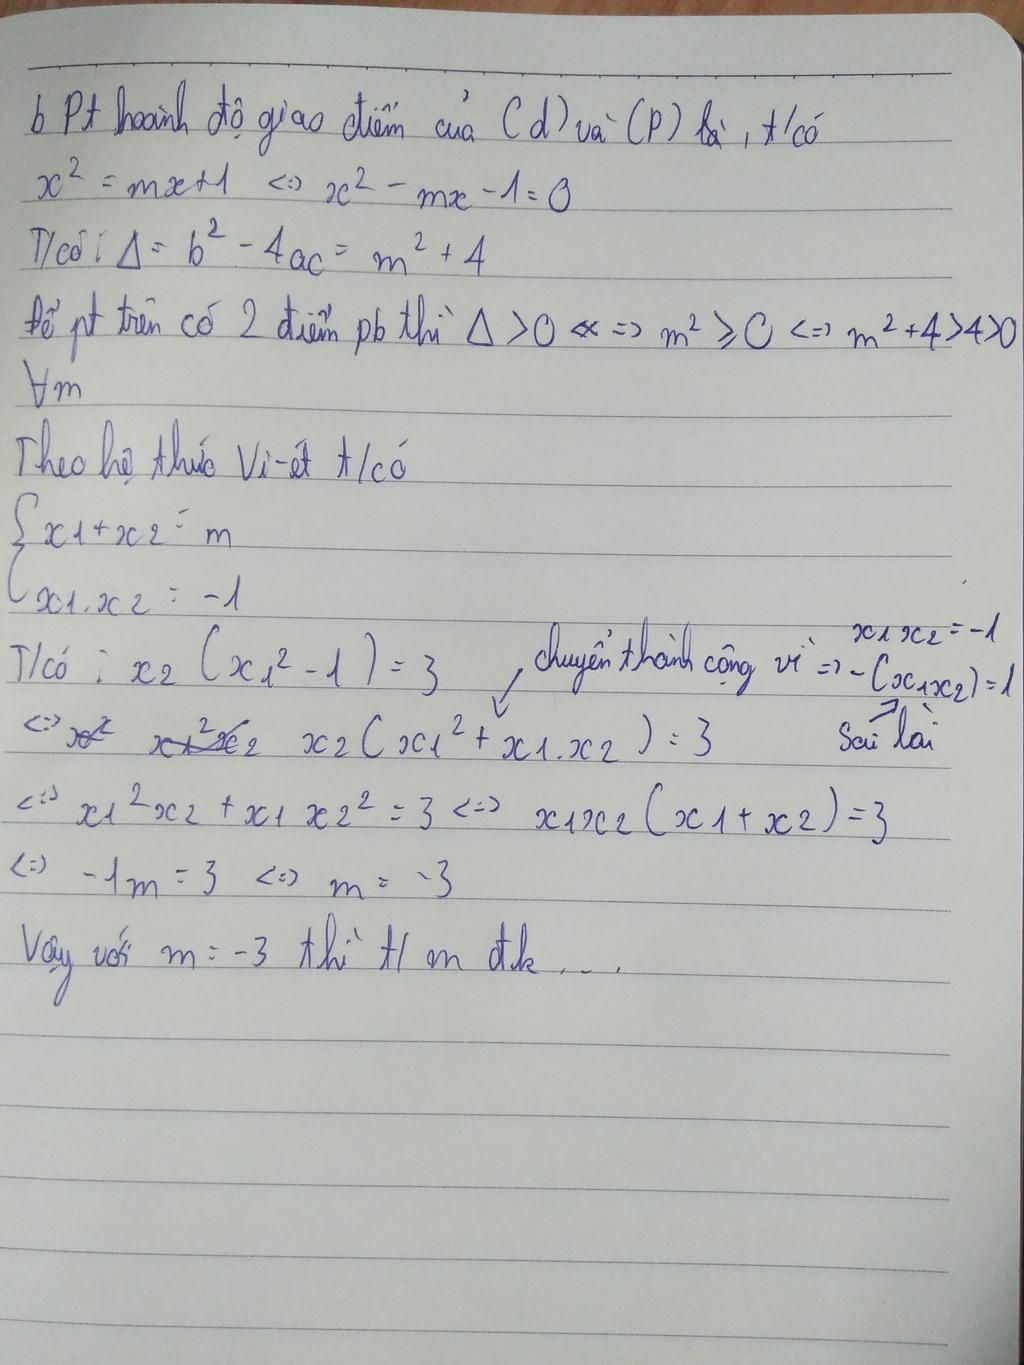 b Pt hoành độ giao điểm của (d) và (P) là, t/có
x² = mx+1 <=> x² - mx - 1 = 0
T/có: Δ = b² - 4ac = m² + 4
Để pt trên có 2 điểm pb thì Δ > 0 <=> m² ≥ 0 <=> m² + 4 > 4 > 0
∀m
Theo hệ thức Vi-ét t/có
{ x1 + x2 = m
x1.x2 = -1
T/có: x2 (x1² - 1) = 3
chuyển thành cộng vì => x1x2 = -1
-(x1x2) = 1
<=> x2 (x1² + x1.x2) = 3
Sai lài
<=> x1²x2 + x1 x2² = 3 <=> x1x2 (x1 + x2) = 3
<=> -1m = 3 <=> m = -3
Vậy với m = -3 thì t/m đk ...